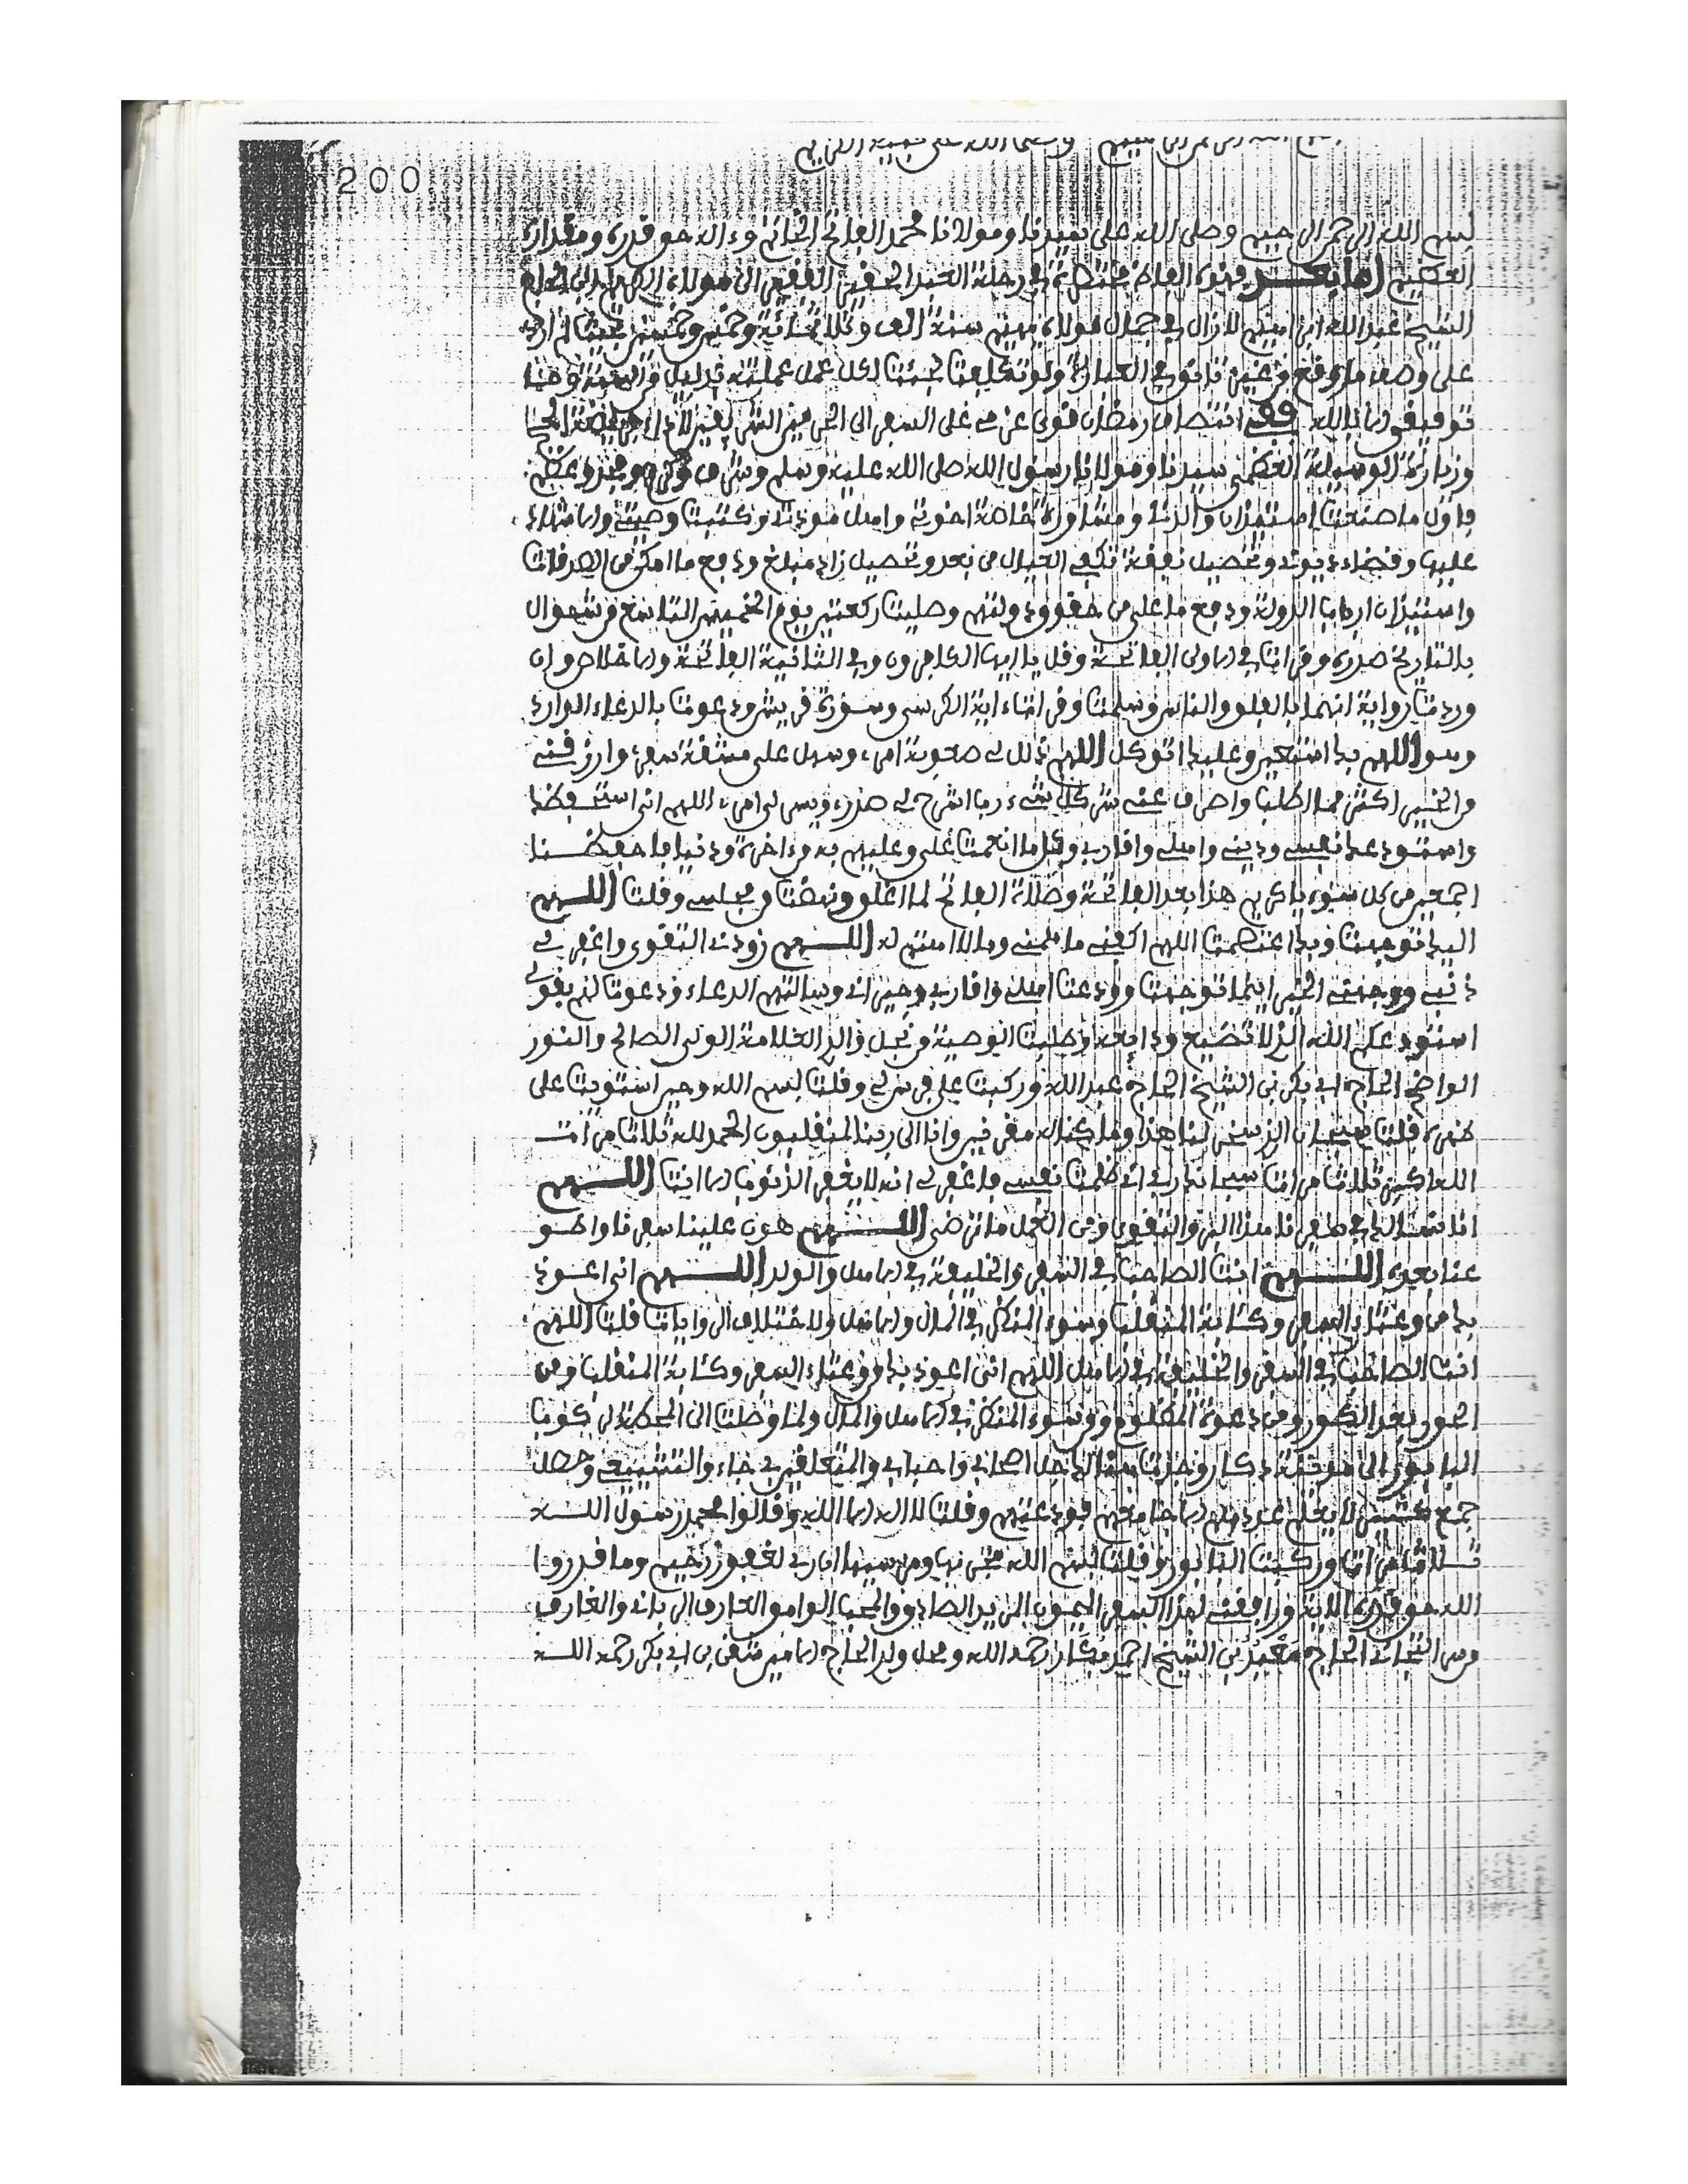 200
بسم الله الرحمن الرحيم وصلى الله على سيدنا ومولانا محمد الفاتح الخاتم وءاله حق قدره ومقداره
العظيم أما بعد فهذه الفاظ مختصرة في رحلة العبد الحقير الفقير الى مولاه
الشيخ عبد الله ابن لازال في سنة الف وثلاثمائة وخمس وخمسين
على وصف ما وقع من غير تانق في العبارة ولو تكلفت لجئت لكل عمل عملته بدليل من السنة وحسبنا
توفيقي الا بالله ففي رمضان قوى عزمي على السفر الى الحرمين الشريفين لأداء فريضة الحج
وزيارة الوسيلة العظمى سيدنا ومولانا رسول الله صلى الله عليه وسلم وشرف وكرم ومجد وعظم
فاول ما صنعت استيذان والدتي ومشاورة خاصة اخوتي واهل مودتي وكتبت وصيتي والاشهاد
عليها وقضاء ديوني وتحصيل نفقة تكفي العيال من بعد وتحصيل زاد مبلغ ودفع ما امكن من الصدقات
واستيذان ارباب الدولة ودفع ما على من حقوق دولتهم وصليت ركعتين يوم الخميس التاسع من شوال
بالتاريخ صدره وقرات في الاولى الفاتحة وقل يا ايها الكافرون وفي الثانية الفاتحة والاخلاص وان
وردت رواية انهما بالفلق والناس وسلمت وقرات اية الكرسي وسورة قريش ودعوت بالدعاء الوارد
وهو اللهم بك استعين وعليك اتوكل اللهم ذلل لي صعوبة امري وسهل على مشقة سفري وارزقني
من الخير اكثر مما اطلب واصرف عني شر كل شيء رب اشرح لي صدري ويسر لي امري اللهم اني استحفظك
واستودعك نفسي وديني واهلي واقاربي وكل ما انعمت على وعليهم به من اخرة ودنيا فاحفظنا
اجمعين من كل سوء يا كريم هذا بعد الفاتحة وصلاة الفاتح لما اغلق ونهضت من مجلسي وقلت اللهم
اليك توجهت وبك اعتصمت اللهم اكفني ما همني وما لا اهتم له اللهم زودني التقوى واغفر لي
ذنبي ووجهني الخير اينما توجهت وودعت اهلي واقاربي وجيراني وسالتهم الدعاء ودعوت لهم بقولي
استودعكم الله الذي لا تضيع ودائعه وطلبت الوصية من نجل ذلك العلامة الولي الصالح والنور
الواضح الحاج ابي بكر بن الشيخ الحاج عبد الله وركبت على فرس لي وقلت بسم الله وحين استويت على
ظهره قلت سبحان الذي سخر لنا هذا وما كنا له مقرنين وانا الى ربنا لمنقلبون الحمد لله ثلاث مرات
الله اكبر ثلاث مرات سبحانك ربي اني ظلمت نفسي فاغفر لي انه لا يغفر الذنوب الا انت اللهم
انا نسالك في سفرنا هذا البر والتقوى ومن العمل ما ترضى اللهم هون علينا سفرنا واطو
عنا بعده اللهم انت الصاحب في السفر والخليفة في الاهل والولد اللهم اني اعوذ
بك من وعثاء السفر وكئابة المنقلب وسوء المنظر في المال والاهل ولاختلاف الروايات قلت اللهم
انت الصاحب في السفر والخليفة في الاهل اللهم اني اعوذ بك من وعثاء السفر وكئابة المنقلب ومن
الحور بعد الكور ومن دعوة المظلوم ومن سوء المنظر في الاهل والمال ولما وصلت الى المحطة لركوب
البابور الى دكار وجدت هنالك اصحابي واحبابي والمتعلقين بي جاءوا لتشييعي وحصل
جمع كثير لا يعلم عددهم الا خالقهم فودعتهم وقلت لا اله الا الله وقالوا محمد رسول الله
ثلاث مرات وركبت البابور وقلت بسم الله مجراها ومرساها ان ربي لغفور رحيم وما قدروا
الله حق قدره الاية ورافقني لهذا السفر الميمون المريد الصادق والمحب الوامق العارف الرباني والغارف
من التجاني الحاج بن الشيخ احمد رحمه الله ونجل ولد الحاج بن ابي بكر رحمه الله